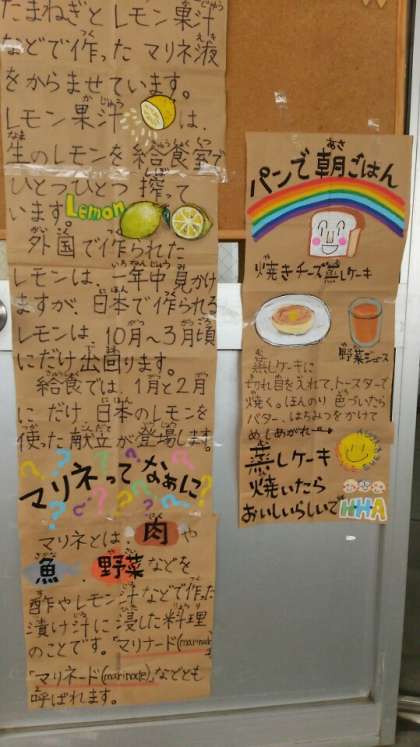 たまねぎとレモン果汁
などで作ったマリネ液
をからませています。
レモン果汁は、
生のレモンを給食室で
ひとつひとつ搾って
います。Lemon
外国で作られた
レモンは、一年中見かけ
ますが、日本で作られる
レモンは、10月〜3月頃
にだけ出回ります。
給食では、1月と2月
にだけ、日本のレモンを
使った献立が登場します。
マリネってなぁに?
マリネとは、肉や
魚、野菜などを
酢やレモン汁などで作った
漬け汁に浸した料理
のことです。「マリナード(marinade)」
「マリネード(marinade)」などとも
呼ばれます。
パンで朝ごはん
焼きチーズ蒸しケーキ
野菜ジュース
蒸しケーキに
切れ目を入れて、トースターで
焼く。ほんのり色づいたら
バター、はちみつをかけて
めしあがれー
蒸しケーキ
焼いたら
おいしいらしいで